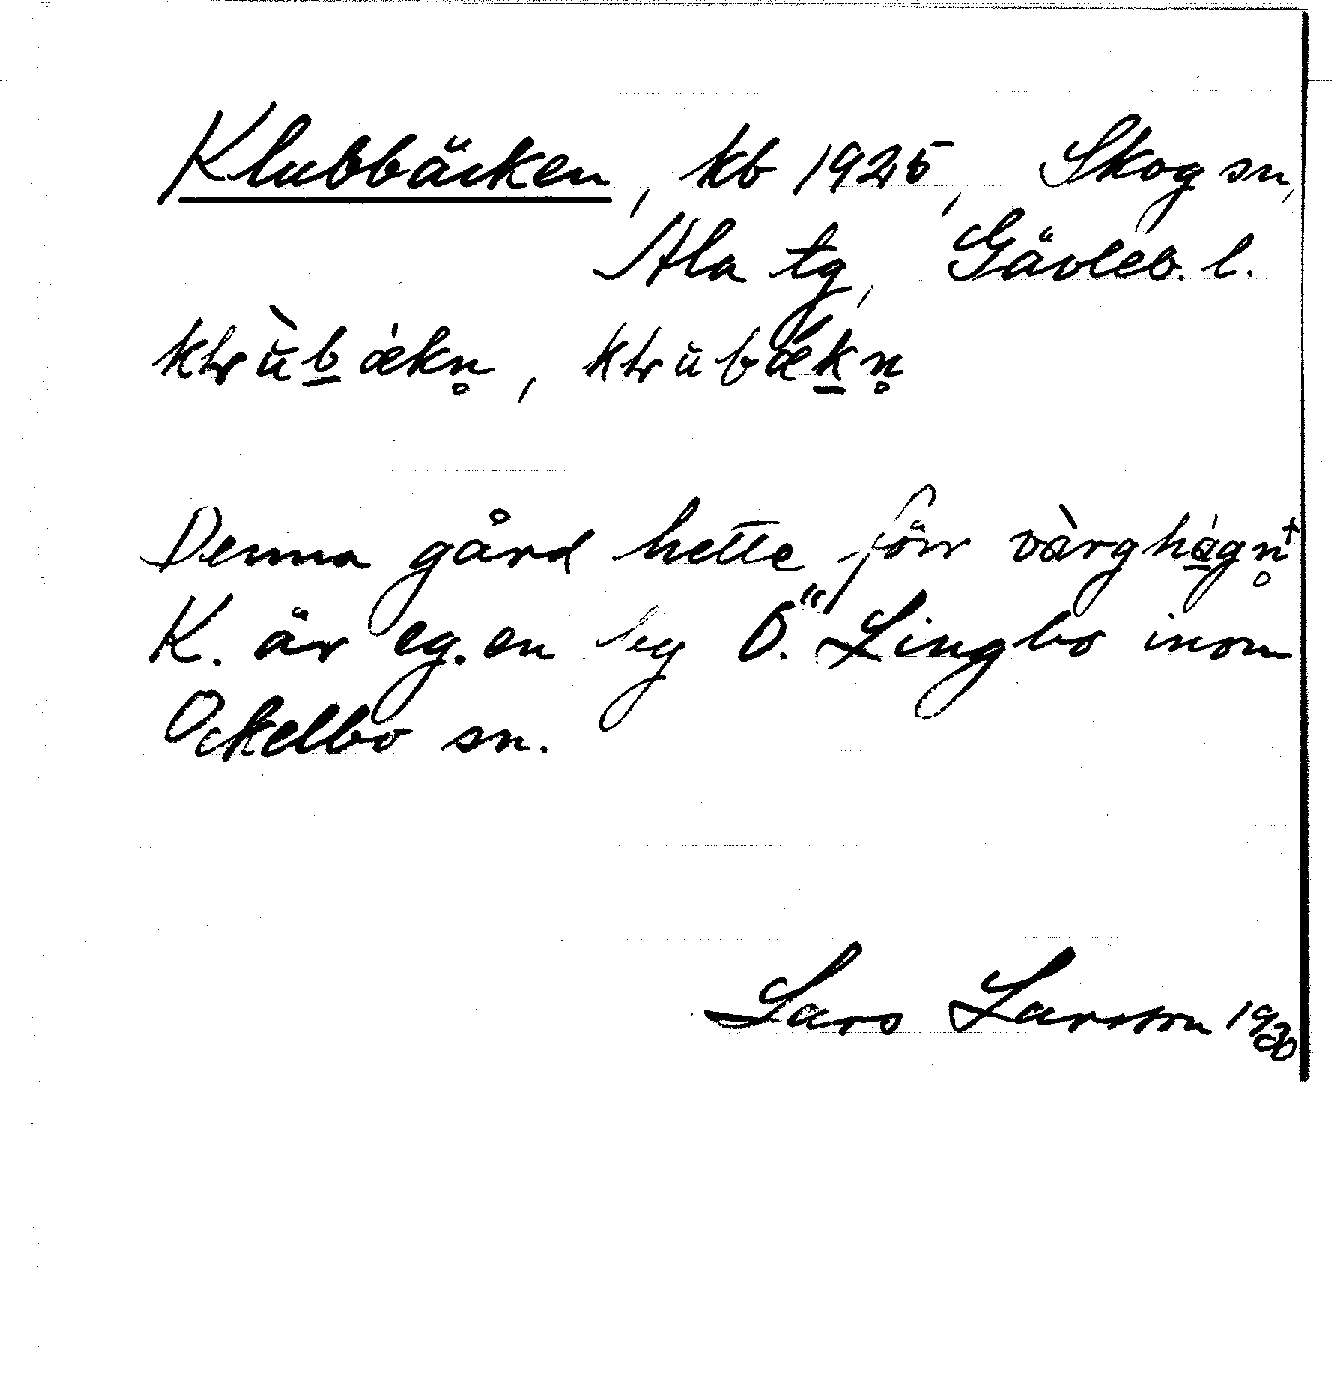 Klubbäcken, kb 1925, Skog sn,
Ala tg, Gävleb. l.
Denna gård hette förr vàrghágn̥+
K. är eg. en by Ö. Lingbo inom
Ockelbo sn.
Lars Larsson 1930